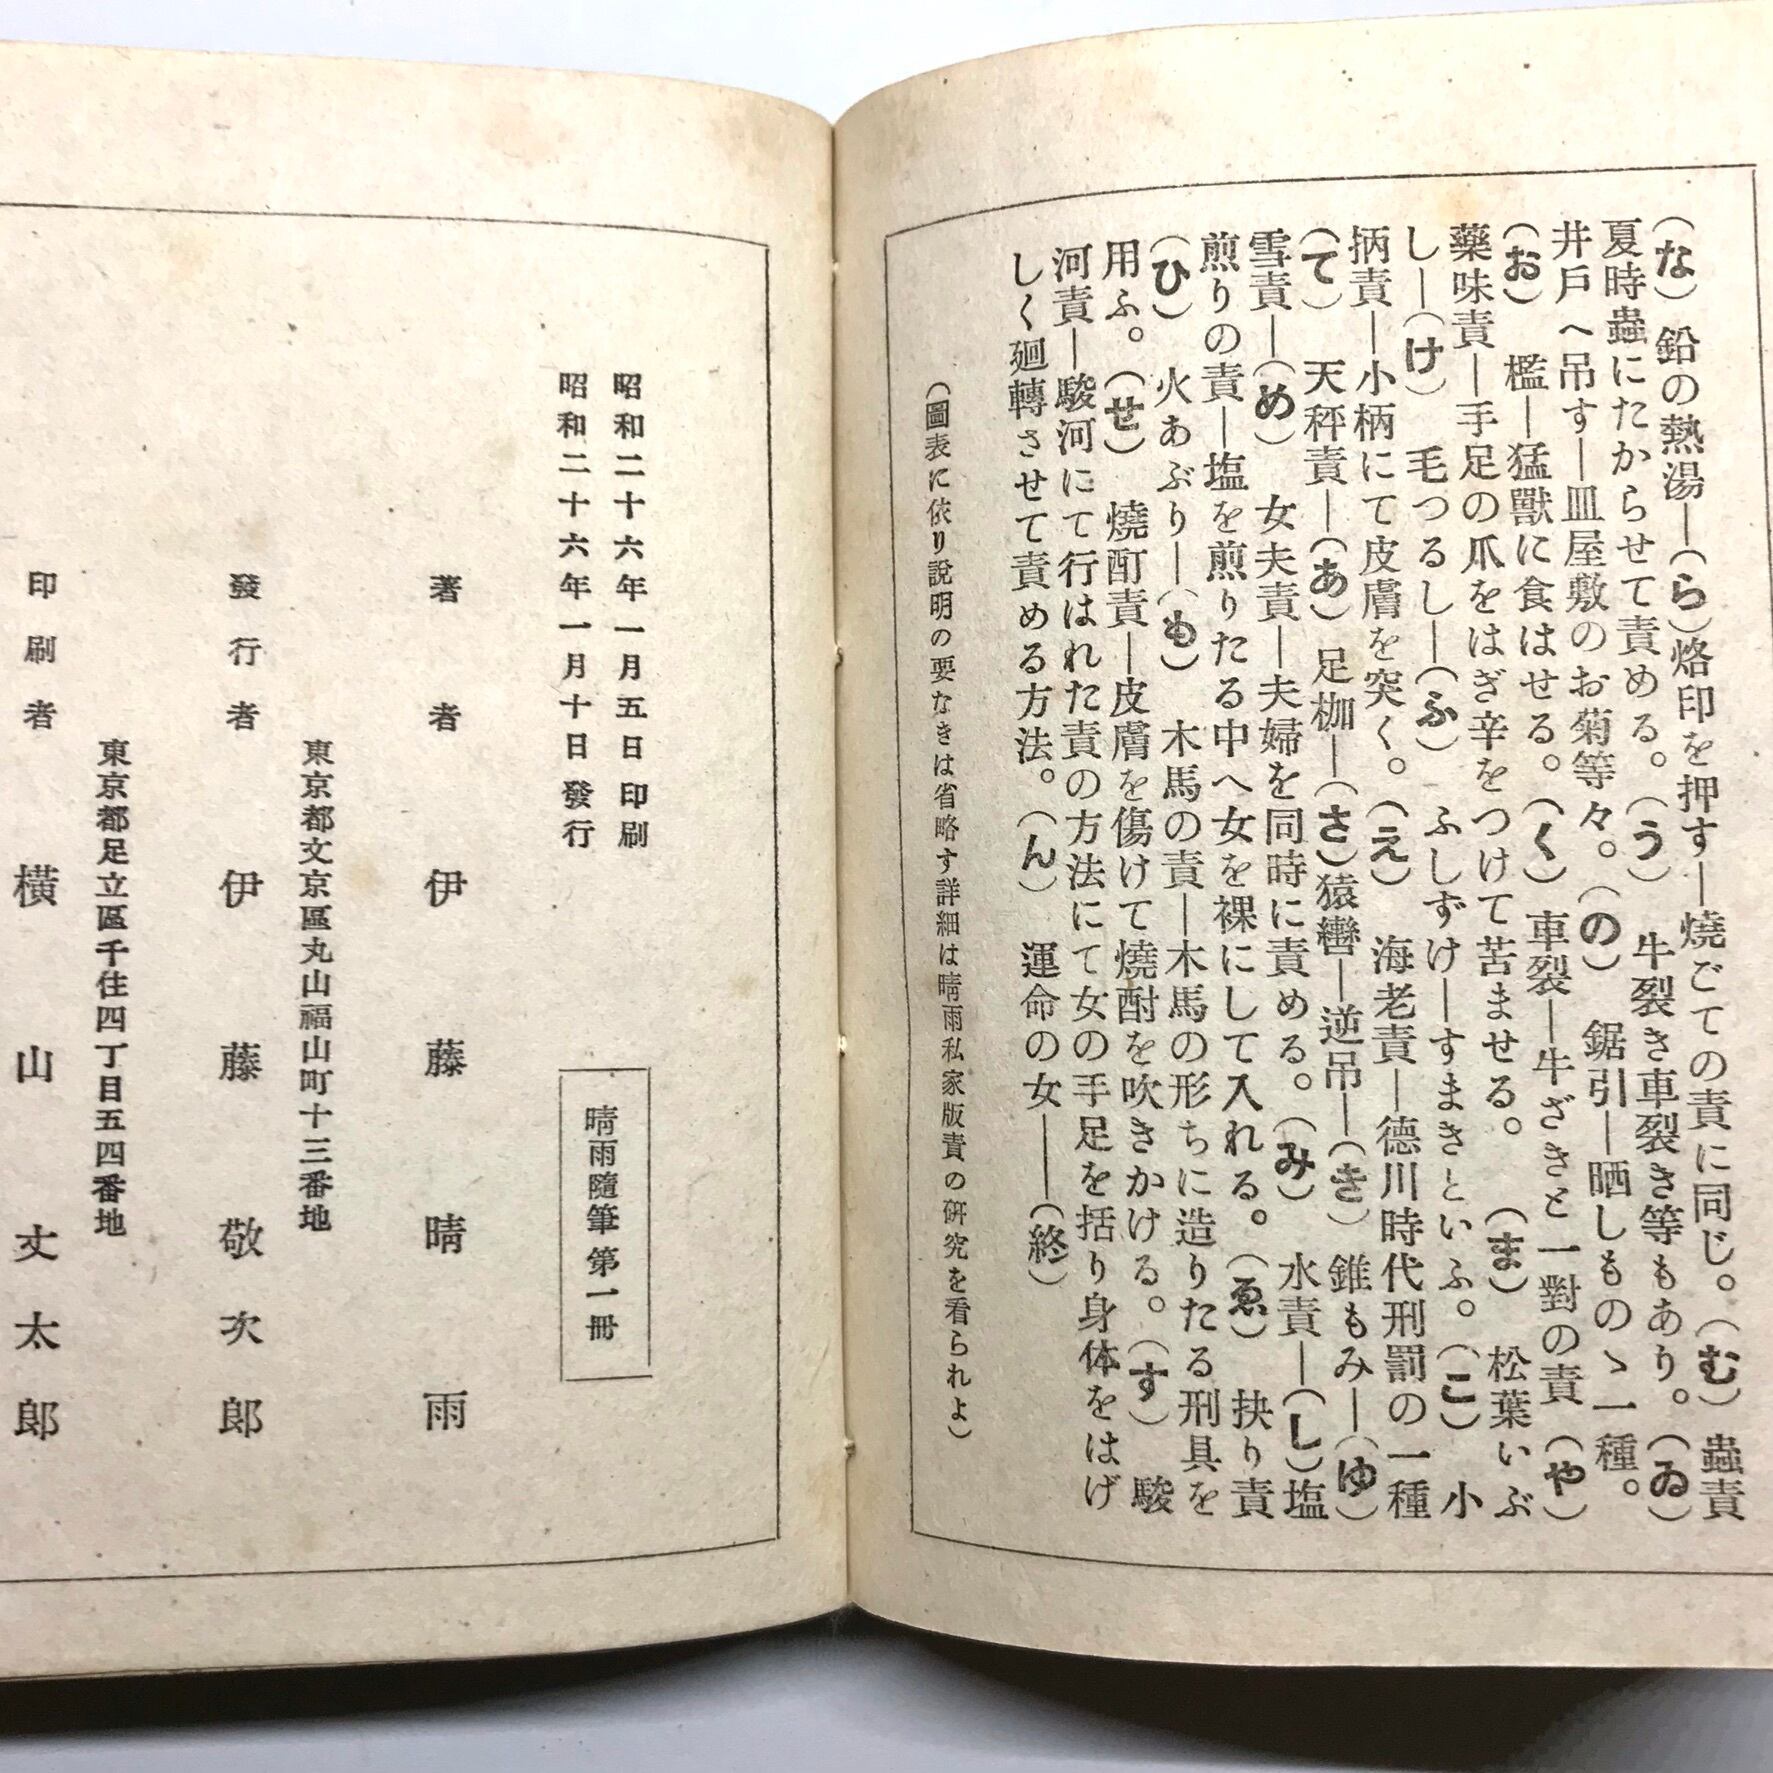 (な) 鉛の熱湯―(ら)烙印を押す―焼ごての責に同じ。(む) 蟲責
夏時蟲にたからせて責める。(う) 牛裂き車裂き等もあり。(ゐ)
井戶へ吊す―皿屋敷のお菊等々。(の) 鋸引―晒しものゝ一種。
(お) 檻―猛獸に食はせる。(く) 車裂―牛ざきと一對の責 (や)
藥味責―手足の爪をはぎ辛をつけて苦ませる。 (ま) 松葉いぶ
し―(け) 毛つるし―(ふ) ふしずけ―すまきといふ。(こ) 小
柄責―小柄にて皮膚を突く。(え) 海老責―德川時代刑罰の一種
(て) 天秤責―(あ) 足枷―(さ)猿轡―逆吊―(き) 錐もみ―(ゆ)
雪責―(め) 女夫責―夫婦を同時に責める。(み) 水責―(し)塩
煎りの責―塩を煎りたる中へ女を裸にして入れる。(ゑ) 抉り責
(ひ) 火あぶり―(も) 木馬の責―木馬の形ちに造りたる刑具を
用ふ。(せ) 燒酊責―皮膚を傷けて燒酎を吹きかける。(す) 駿
河責―駿河にて行はれた責の方法にて女の手足を括り身体をはげ
しく廻轉させて責める方法。(ん) 運命の女――(終)
(圖表に依り說明の要なきは省略す詳細は晴雨私家版責の硏究を看られよ)
晴雨隨筆第一冊
昭和二十六年一月五日印刷
昭和二十六年一月十日發行
著者 伊藤晴雨
東京都文京區丸山福山町十三番地
發行者 伊藤敬次郎
東京都足立區千住四丁目五四番地
印刷者 橫山丈太郎